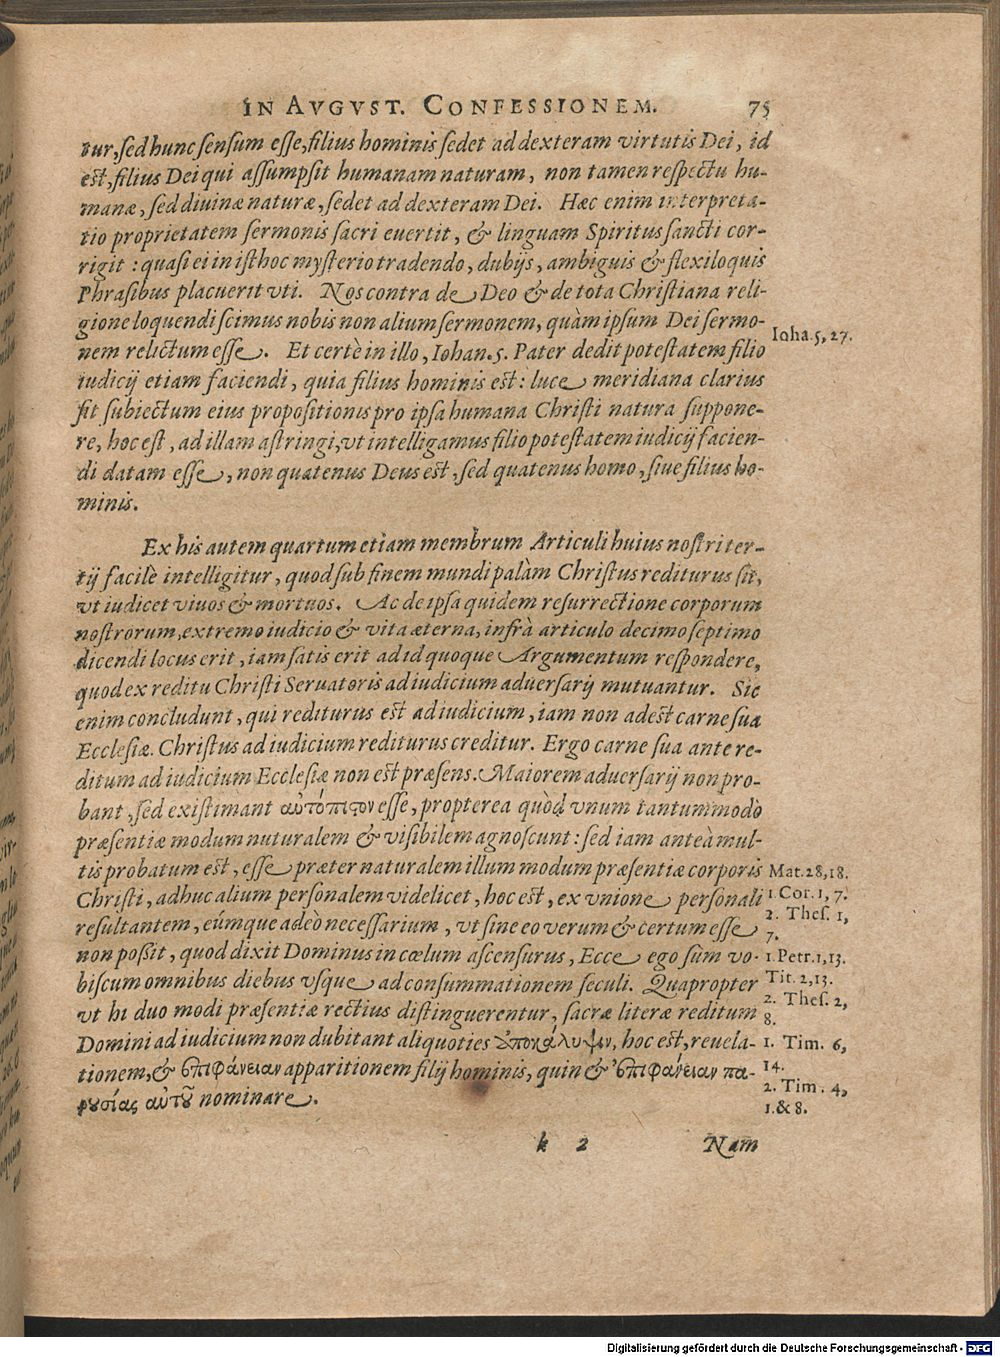 IN AVGVST. CONFESSIONEM. 75
tur, sed hunc sensum esse, filius hominis sedet ad dexteram virtutis Dei, id
est, filius Dei qui assumpsit humanam naturam, non tamen respectu hu-
manæ, sed diuinæ naturæ, sedet ad dexteram Dei. Hæc enim interpreta-
tio proprietatem sermonis sacri euertit, & linguam Spiritus sancti cor-
rigit: quasi ei in isthoc mysterio tradendo, dubijs, ambiguis & flexiloquis
Phrasibus placuerit vti. Nos contra de Deo & de tota Christiana reli-
gione loquendi scimus nobis non alium sermonem, quàm ipsum Dei sermo-
nem relictum esse. Et certè in illo, Iohan. 5. Pater dedit potestatem filio
iudicij etiam faciendi, quia filius hominis est: luce meridiana clarius
fit subiectum eius propositionis pro ipsa humana Christi natura suppone-
re, hoc est, ad illam astringi, vt intelligamus filio potestatem iudicij facien-
di datam esse, non quatenus Deus est, sed quatenus homo, siue filius ho-
minis.
Ioha. 5, 27.
Ex his autem quartum etiam membrum Articuli huius nostri ter-
tij facilè intelligitur, quod sub finem mundi palàm Christus rediturus sit,
vt iudicet viuos & mortuos. Ac de ipsa quidem resurrectione corporum
nostrorum, extremo iudicio & vita æterna, infrà articulo decimo septimo
dicendi locus erit, iam satis erit ad id quoque Argumentum respondere,
quod ex reditu Christi Seruatoris ad iudicium aduersarij mutuantur. Sic
enim concludunt, qui rediturus est ad iudicium, iam non adest carne sua
Ecclesiæ. Christus ad iudicium rediturus creditur. Ergo carne sua ante re-
ditum ad iudicium Ecclesiæ non est præsens. Maiorem aduersarij non pro-
bant, sed existimant αὐτόπιστον esse, propterea quòd vnum tantummodo
præsentiæ modum nuturalem & visibilem agnoscunt: sed iam anteà mul-
tis probatum est, esse præter naturalem illum modum præsentiæ corporis
Christi, adhuc alium personalem videlicet, hoc est, ex vnione personali
resultantem, eúmque adeò necessarium, vt sine eo verum & certum esse
non possit, quod dixit Dominus in cœlum ascensurus, Ecce ego sum vo-
biscum omnibus diebus vsque ad consummationem seculi. Quapropter
vt hi duo modi præsentiæ rectius distinguerentur, sacræ literæ reditum
Domini ad iudicium non dubitant aliquoties ἀποκάλυψιν, hoc est, reuela-
tionem, & ἐπιφάνειαν apparitionem filij hominis, quin & ἐπιφάνειαν πα-
ρουσίας αὐτοῦ nominare.
Mat. 28, 18.
1. Cor. 1, 7.
2. Thes. 1,
7.
1. Petr. 1, 13.
Tit. 2, 13.
2. Thes. 2,
8.
1. Tim. 6,
14.
2. Tim. 4,
1. & 8.
k 2 Nam
Digitalisierung gefördert durch die Deutsche Forschungsgemeinschaft - DFG